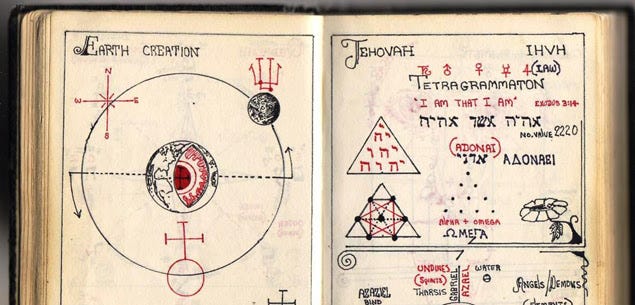 EARTH CREATION
N
S
JEHOVAH IHVH
(IAW)
TETRAGRAMMATON
"I AM THAT I AM" EXODUS 3:14
אהיה אשר אהיה
NO. VALUE 2220
(ADONAI)
אדני
ALPHA + OMEGA
ΩΜΕΓΑ
UNDINES
(SPIRITS)
THARSIS
GABRIEL
AZAEL
WATER
ANGELS/DEMONS
AZAZEL
BIND